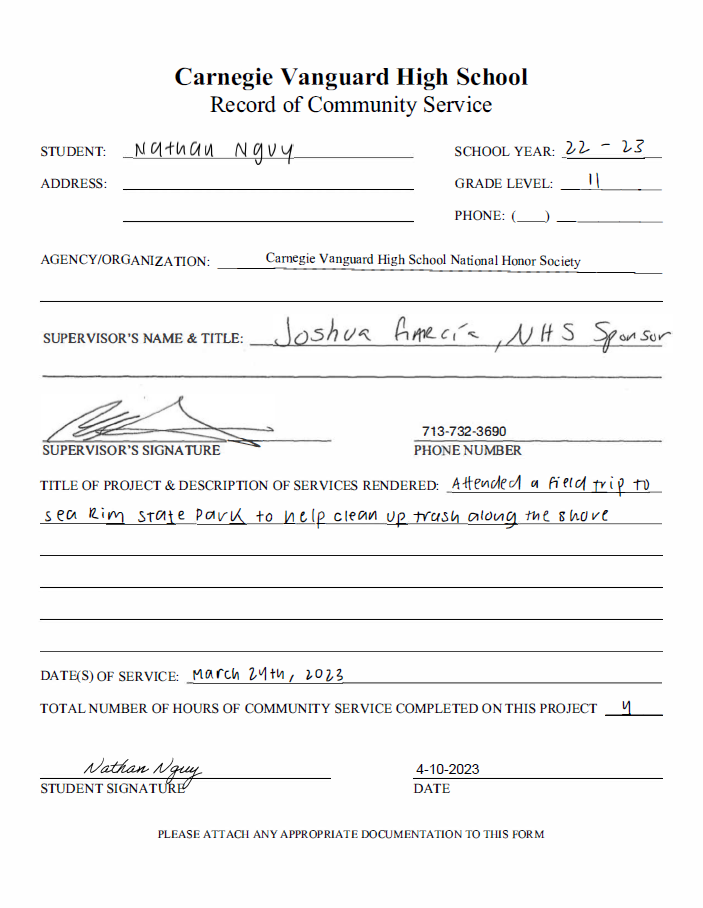 Carnegie Vanguard High School
Record of Community Service
STUDENT: Nathan Nguy SCHOOL YEAR: 22 - 23
ADDRESS: GRADE LEVEL: 11
PHONE: (___)
AGENCY/ORGANIZATION: Carnegie Vanguard High School National Honor Society
SUPERVISOR'S NAME & TITLE: Joshua , NHS Sponsor
713-732-3690
SUPERVISOR'S SIGNATURE PHONE NUMBER
TITLE OF PROJECT & DESCRIPTION OF SERVICES RENDERED: Attended a field trip to
sea Rim state Park to help clean up trash along the shore
DATE(S) OF SERVICE: March 24th, 2023
TOTAL NUMBER OF HOURS OF COMMUNITY SERVICE COMPLETED ON THIS PROJECT 4
Nathan Nguy 4-10-2023
STUDENT SIGNATURE DATE
PLEASE ATTACH ANY APPROPRIATE DOCUMENTATION TO THIS FORM